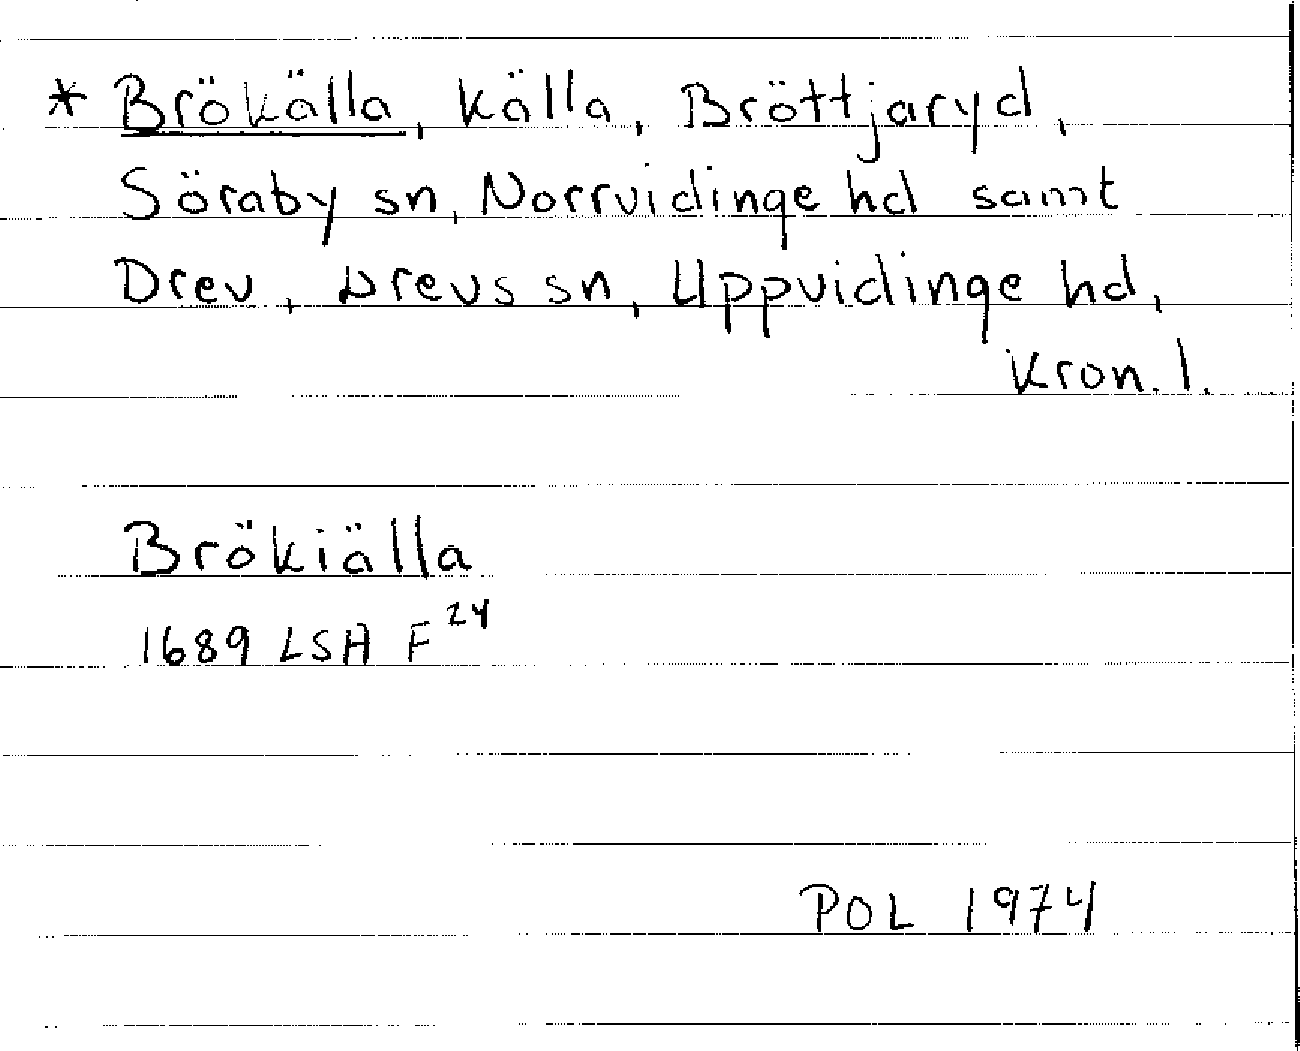 * Brökälla, källa, Bröttjaryd,
Söraby sn, Norrvidinge hd samt
Drev, Drevs sn, Uppvidinge hd,
Kron. l.
Brökiälla
1689 LSA F 24
POL 1974